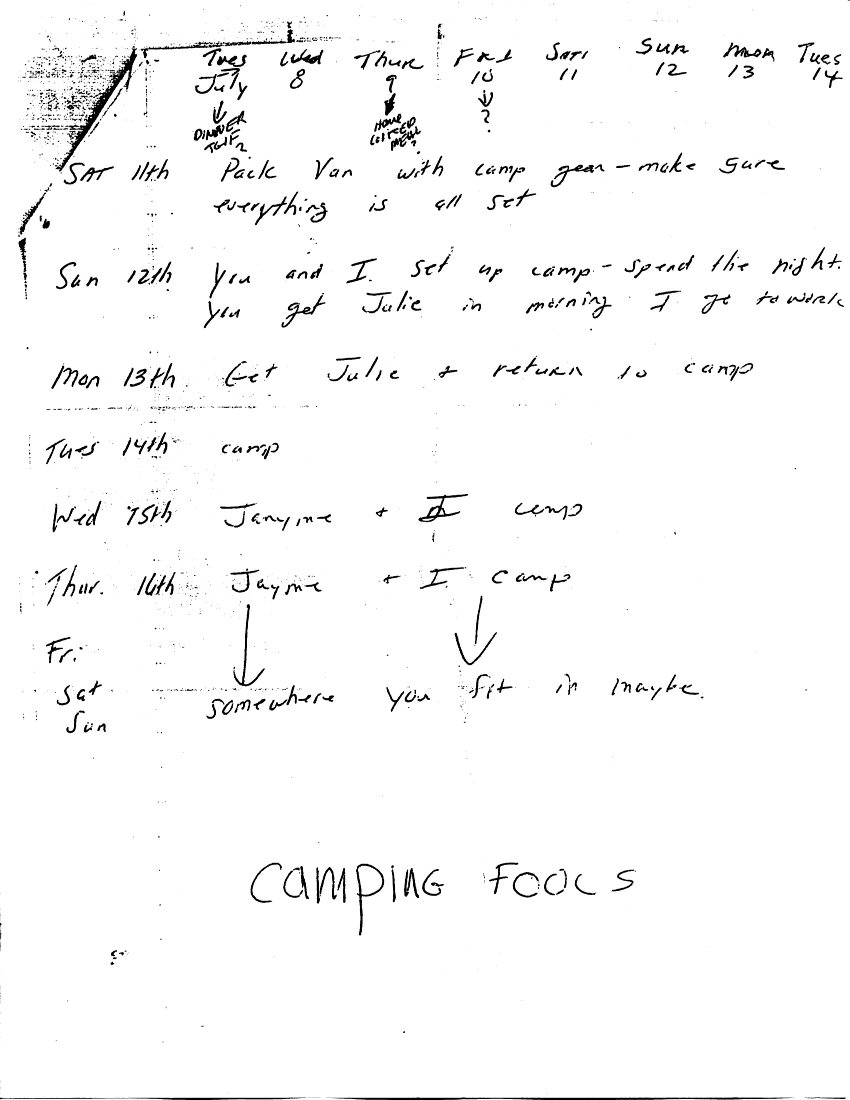 Tues Wed Thur FRI SAT SUN MON Tues
July 8 9 10 11 12 13 14
?
DINNER HOME
COOKED
MEAL?
SAT 11th Pack Van with camp gear - make sure
everything is all set
Sun 12th You and I set up camp - spend the night.
You get Julie in morning I go to work
Mon 13th Get Julie + return to camp
Tues 14th camp
Wed 15th Janyme + I camp
Thur. 16th Jayme + I camp
Fri
Sat somewhere you fit in maybe.
Sun
CAMPING FOOLS